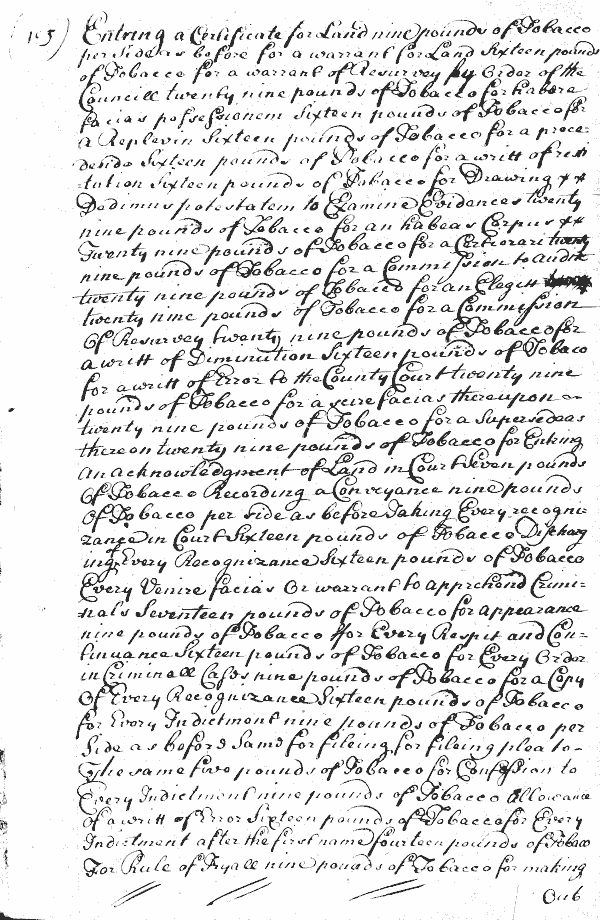 (105)
Entring a Certificate for Land nine pounds of Tobacco
per Side as before for a warrant for Land Sixteen pounds
of Tobacco for a warrant of Resurvey by Order of the
Councill twenty nine pounds of Tobacco for habere
facias possessionem Sixteen pounds of Tobacco for
a Replevin Sixteen pounds of Tobacco for a proce-
dendo Sixteen pounds of Tobacco for a writt of resti
tution Sixteen pounds of Tobacco for Drawing
Dedimus potestatem to Examine Evidences twenty
nine pounds of Tobacco for an habeas Corpus
Twenty nine pounds of Tobacco for a Certiorari twenty
nine pounds of Tobacco for a Commission to audit
twenty nine pounds of Tobacco for an Elegitt
twenty nine pounds of Tobacco for a Commission
Of Resurvey twenty nine pounds of Tobacco for
a writt of Diminution Sixteen pounds of Tobaco
for a writt of Error to the County Court twenty nine
pounds of Tobacco for a scire facias thereupon
twenty nine pounds of Tobacco for a Supersedeas
thereon twenty nine pounds of Tobacco for Entring
an acknowledgment of Land in Court Seven pounds
Of Tobacco Recording a Conveyance nine pounds
Of Tobacco per side as before Taking Every recogni-
zance in Court Sixteen pounds of Tobacco Discharg
ing Every Recognizance Sixteen pounds of Tobacco
Every Venire facias Or warrant to apprehend Crimi-
nal's Seventeen pounds of Tobacco for appearance
nine pounds of Tobacco for Every Respit and Con-
tinuance Sixteen pounds of Tobacco for Every Order
in Criminall Cases nine pounds of Tobacco for a Copy
Of Every Recognizance Sixteen pounds of Tobacco
for Every Indictment nine pounds of Tobacco per
Side as before Same for fileing for fileing plea to
The same five pounds of Tobacco for Confession to
Every Indictment nine pounds of Tobacco Allowance
of a writt of Error Sixteen pounds of Tobacco for Every
Indictment after the first name fourteen pounds of Tobaco
For Rule of Tryall nine pounds of Tobacco for making
Out